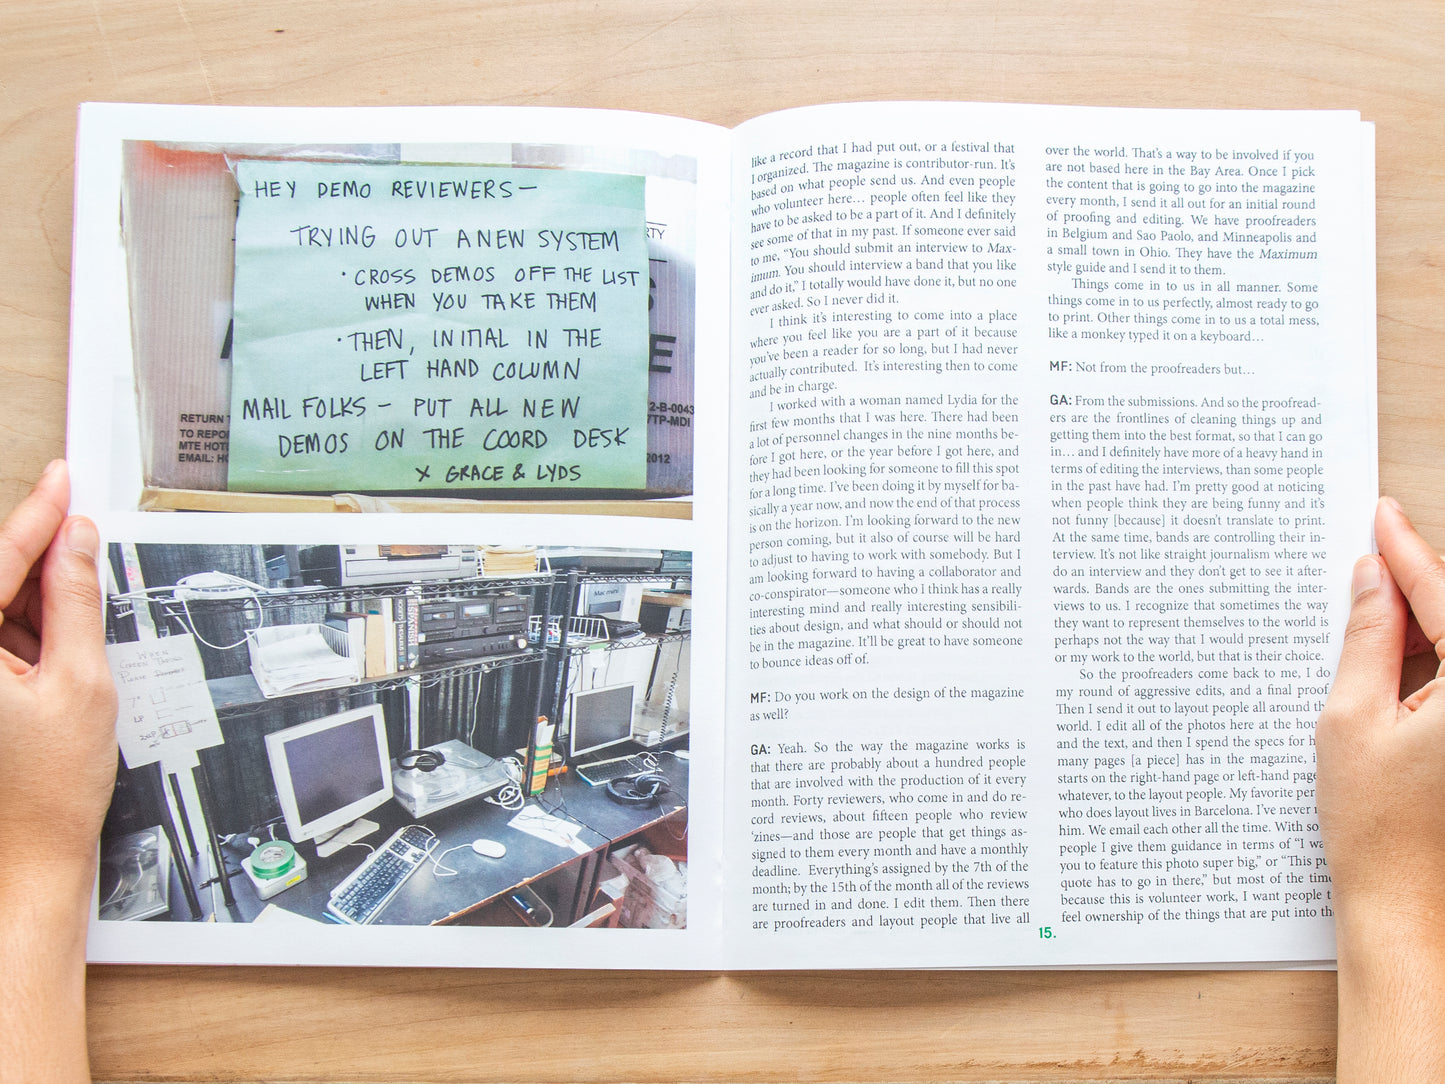 HEY DEMO REVIEWERS—
TRYING OUT A NEW SYSTEM
· CROSS DEMOS OFF THE LIST
WHEN YOU TAKE THEM
· THEN, INITIAL IN THE
LEFT HAND COLUMN
MAIL FOLKS — PUT ALL NEW
DEMOS ON THE COORD DESK
X GRACE & LYDS
RETURN
TO REPO
MTE HOT
EMAIL: HO
2-B-0043
7TP-MDI
2012
RTY
WHEN
SCREEN TAKING
PLEASE REMEMBER
7"
LP
Mac mini
like a record that I had put out, or a festival that
I organized. The magazine is contributor-run. It's
based on what people send us. And even people
who volunteer here… people often feel like they
have to be asked to be a part of it. And I definitely
see some of that in my past. If someone ever said
to me, “You should submit an interview to Max-
imum. You should interview a band that you like
and do it,” I totally would have done it, but no one
ever asked. So I never did it.
I think it's interesting to come into a place
where you feel like you are a part of it because
you've been a reader for so long, but I had never
actually contributed. It's interesting then to come
and be in charge.
I worked with a woman named Lydia for the
first few months that I was here. There had been
a lot of personnel changes in the nine months be-
fore I got here, or the year before I got here, and
they had been looking for someone to fill this spot
for a long time. I've been doing it by myself for ba-
sically a year now, and now the end of that process
is on the horizon. I'm looking forward to the new
person coming, but it also of course will be hard
to adjust to having to work with somebody. But I
am looking forward to having a collaborator and
co-conspirator—someone who I think has a really
interesting mind and really interesting sensibili-
ties about design, and what should or should not
be in the magazine. It'll be great to have someone
to bounce ideas off of.
MF: Do you work on the design of the magazine
as well?
GA: Yeah. So the way the magazine works is
that there are probably about a hundred people
that are involved with the production of it every
month. Forty reviewers, who come in and do re-
cord reviews, about fifteen people who review
‘zines—and those are people that get things as-
signed to them every month and have a monthly
deadline. Everything's assigned by the 7th of the
month; by the 15th of the month all of the reviews
are turned in and done. I edit them. Then there
are proofreaders and layout people that live all
over the world. That's a way to be involved if you
are not based here in the Bay Area. Once I pick
the content that is going to go into the magazine
every month, I send it all out for an initial round
of proofing and editing. We have proofreaders
in Belgium and Sao Paolo, and Minneapolis and
a small town in Ohio. They have the Maximum
style guide and I send it to them.
Things come in to us in all manner. Some
things come in to us perfectly, almost ready to go
to print. Other things come in to us a total mess,
like a monkey typed it on a keyboard…
MF: Not from the proofreaders but…
GA: From the submissions. And so the proofread-
ers are the frontlines of cleaning things up and
getting them into the best format, so that I can go
in… and I definitely have more of a heavy hand in
terms of editing the interviews, than some people
in the past have had. I'm pretty good at noticing
when people think they are being funny and it's
not funny [because] it doesn't translate to print.
At the same time, bands are controlling their in-
terview. It's not like straight journalism where we
do an interview and they don't get to see it after-
wards. Bands are the ones submitting the inter-
views to us. I recognize that sometimes the way
they want to represent themselves to the world is
perhaps not the way that I would present myself
or my work to the world, but that is their choice.
So the proofreaders come back to me, I do
my round of aggressive edits, and a final proof.
Then I send it out to layout people all around th
world. I edit all of the photos here at the hou
and the text, and then I spend the specs for h
many pages [a piece] has in the magazine, i
starts on the right-hand page or left-hand page
whatever, to the layout people. My favorite per
who does layout lives in Barcelona. I've never
him. We email each other all the time. With so
people I give them guidance in terms of “I wa
you to feature this photo super big,” or “This pu
quote has to go in there,” but most of the time
because this is volunteer work, I want people t
feel ownership of the things that are put into the
15.